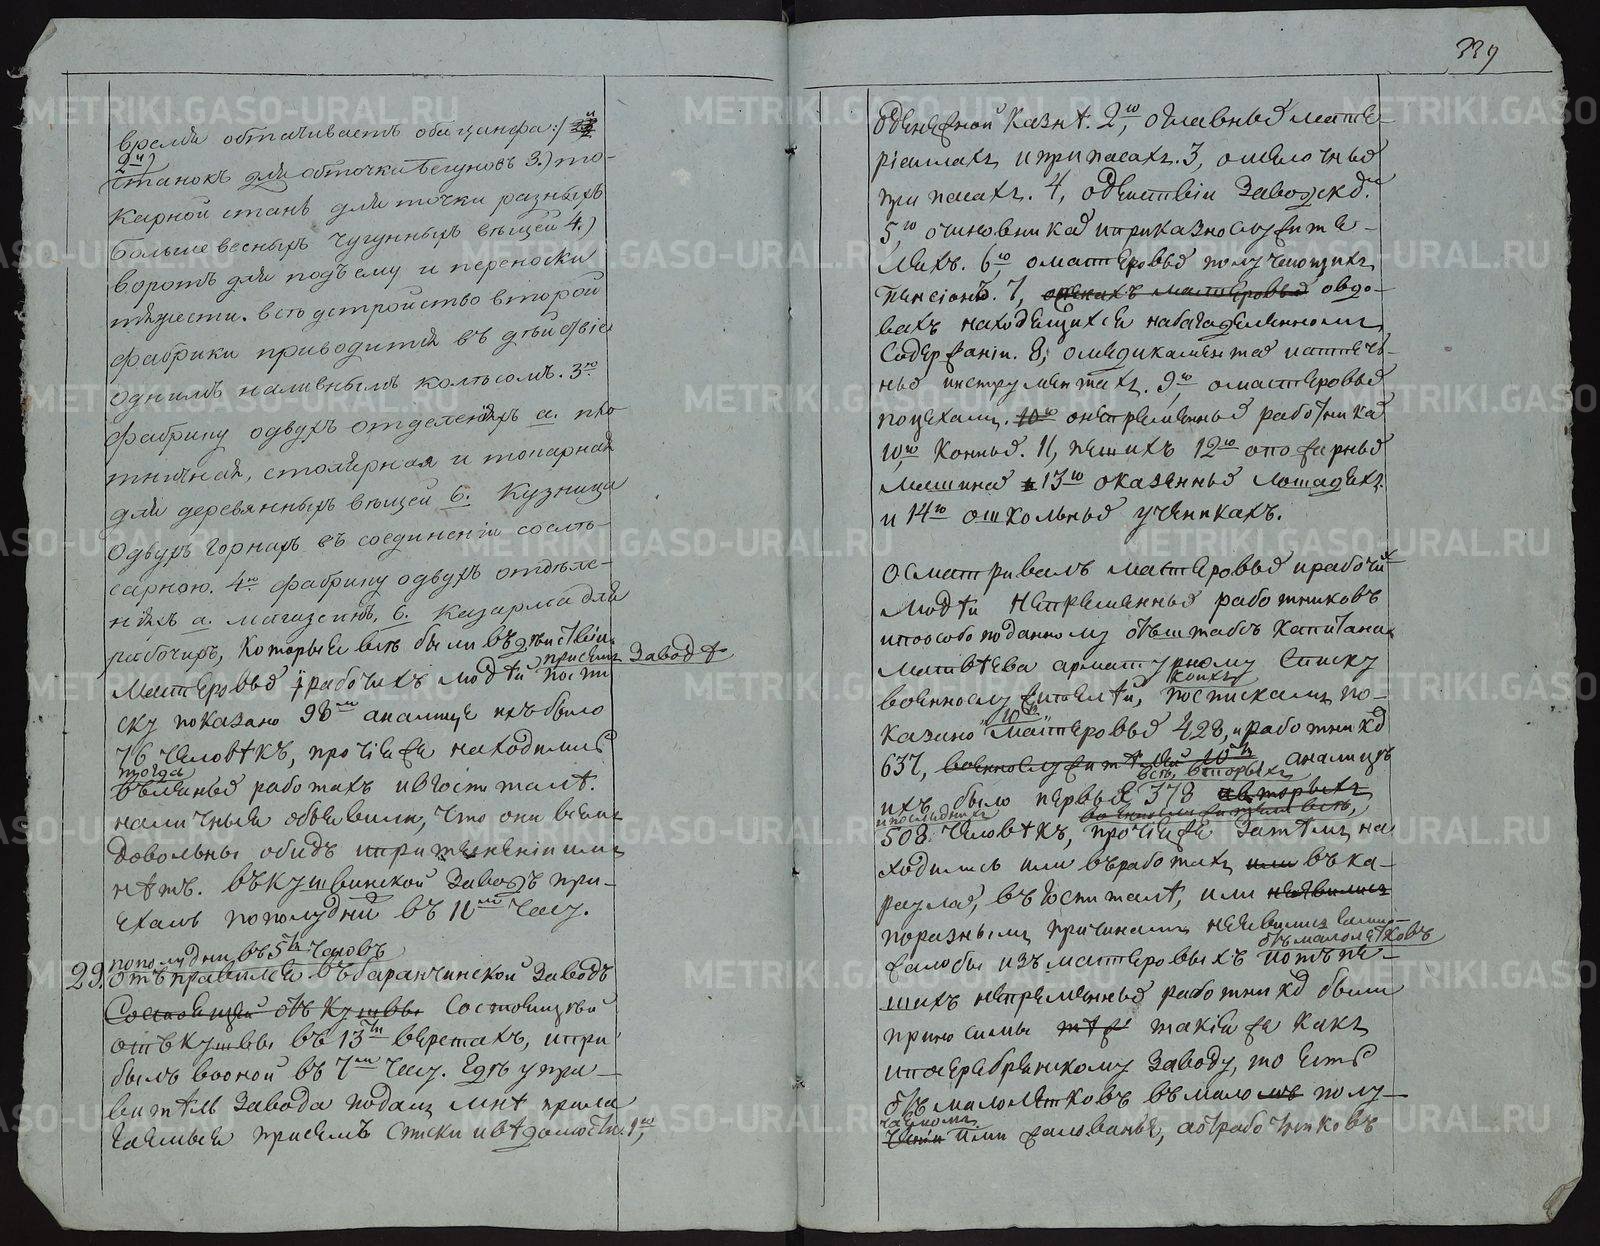 339
время обтачиваетъ оба цинфа:/ и
2й)
станокъ для обточки бегуновъ 3.) то-
карной станъ для точки разныхъ
большевесныхъ чугунныхъ вещей 4.)
воротъ для подъему и переноски
тяжести. Всё устройство второй
фабрики приводится въ действіе
однимъ наливнымъ колесомъ. 3ю
фабрику одвухъ отделеніяхъ а. пло
тничная, столярная и токарная
для деревянныхъ вещей б. Кузница
одвухъ горнахъ въ соединеніи со слѣ-
сарною. 4ю фабрику одвухъ отдѣле-
ніяхъ а. магазеинъ, б. казарма для
рабочихъ, которыя всѣ были въ дѣйствіи.
при семъ Заводѣ
Мастеровыхъ и рабочихъ людѣй по спи
ску показано 98мь аналице ихъ было
76 человѣкъ, прочіе же находились
тогда
въ разныхъ работахъ и в госпиталѣ.
наличные объявили, что они всемъ
довольны обидъ и притѣсненіи имъ
нѣтъ. Въ Кушвинской Заводъ прі-
ехалъ пополудни въ 11мъ часу.
пополудни въ 5ть часовъ
29. отъправился въ Баранчинской Заводъ
Состоящій отъ Кушвы Состоящій
отъ Кушвы въ 13ти верстахъ, и при
былъ в оной въ 7мъ часу. Здѣ упра-
витѣль Завода подалъ мнѣ прила
гаемые при семъ списки и вѣдомости 1ю,
о денежной казнѣ. 2ю, о главныхъ мате-
ріаллахъ и припасахъ. 3, о мелочныхъ
припасахъ. 4, о действіи Заводскомъ
5ю, о чиновникахъ и приказнослужите-
ляхъ. 6ю, о мастеровыхъ получающихъ
пенсіонъ. 7, о женахъ мастеровыхъ о вдо-
вахъ находящихся на багаделенномъ
Содержаніи. 8, о медикаментахъ и аптеч-
ныхъ инструментахъ. 9ю, о мастеровыхъ
по цехамъ. 10ю о непременныхъ работникахъ
10ю конныхъ. 11, пешихъ 12ю о пожарныхъ
машинахъ 13ю о казенныхъ лошадяхъ
и 14ю о школьныхъ ученикахъ.
Осматривалъ мастеровыхъ и рабочихъ
людѣй непременныхъ работниковъ
и по особо поданному отъ штабсъ капитана
Матвѣева арматурному списку
военнослужителѣй, коихъ по спискамъ по-
казано мастеровыхъ 428, и работниковъ
637, военнослужителѣй аналицъ
ихъ было первыхъ 378 вторыхъ
и последнихъ
508 человѣкъ, прочіе же затѣмъ на
ходились или въ работахъ или въ ка-
раулахъ, въ госпиталѣ, или неявились
по разнымъ причинамъ неявились
жалобы изъ мастеровыхъ отъ малолѣтковъ и отъ пе-
шихъ непременныхъ работниковъ были
приносимы такіе же какъ
и по Серебрянскому Заводу, то есть
отъ малолѣтковъ въ мало полу-
чаемомъ
ими жалованье, а отъ работниковъ